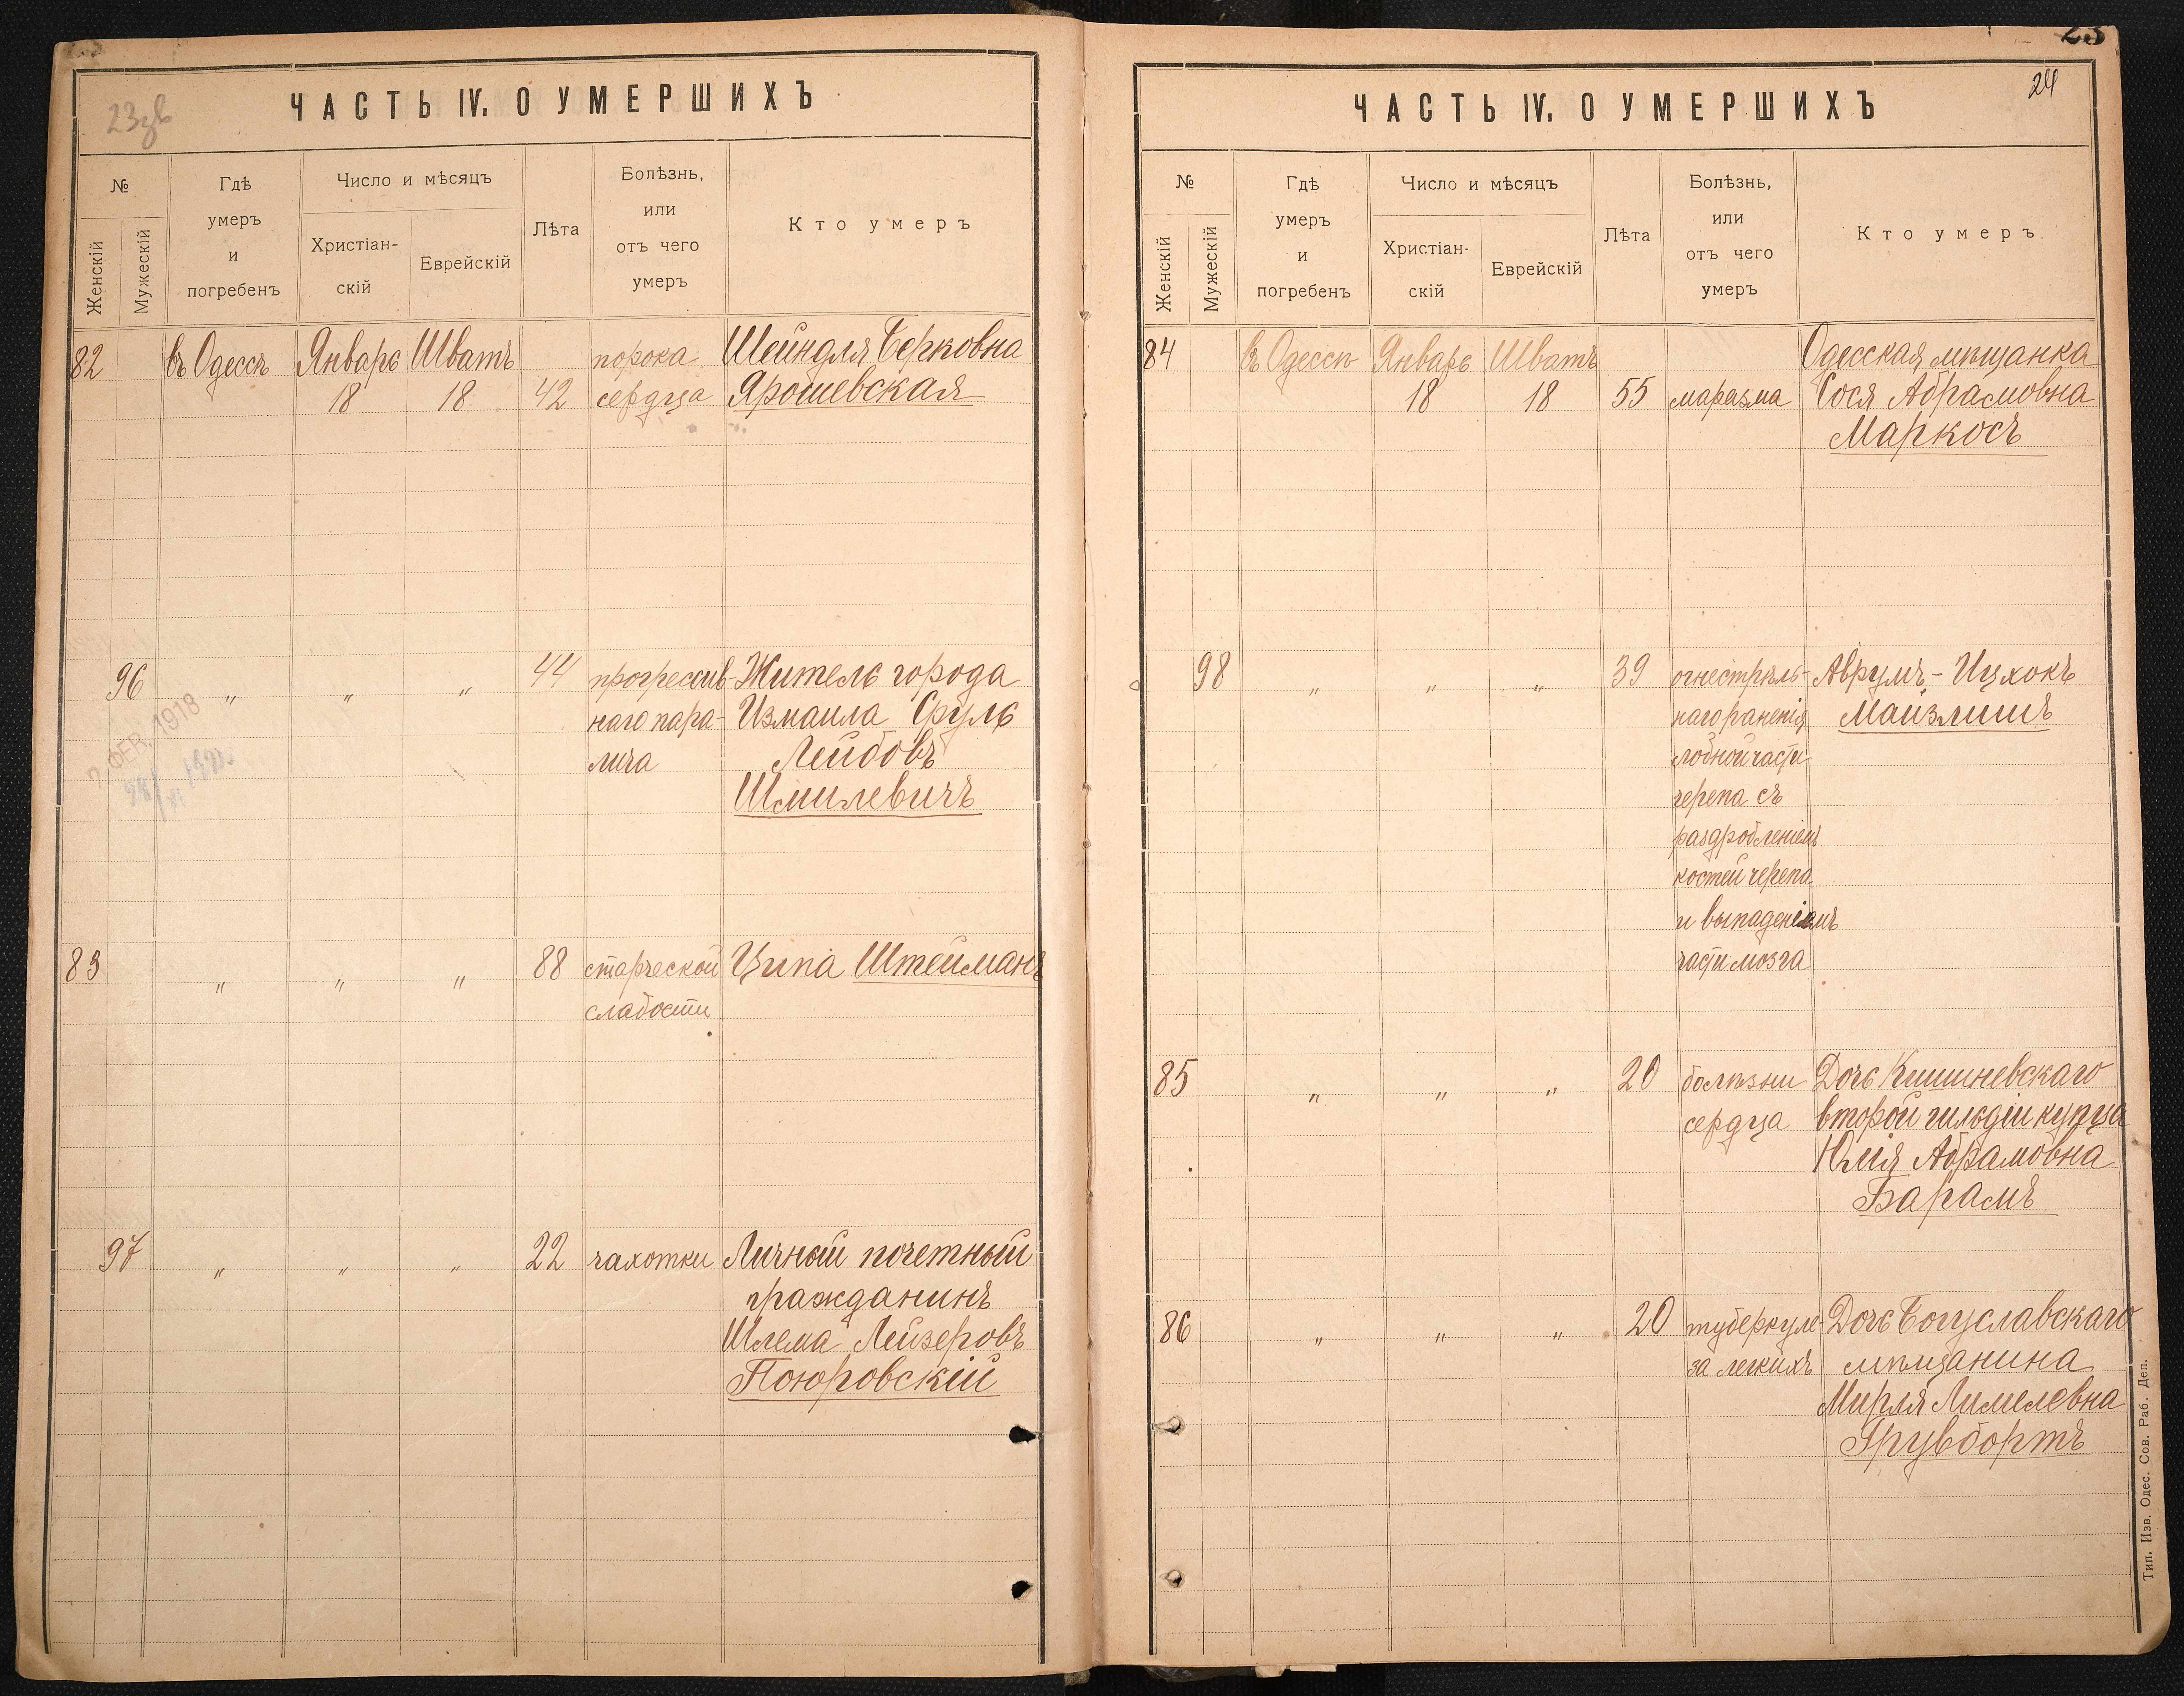 23зв
ЧАСТЬ IV. О УМЕРШИХЪ
№
Женскій
Мужескій
Гдѣ
умеръ
и
погребенъ
Число и мѣсяцъ
Христіан-
скій
Еврейскій
Лѣта
Болѣзнь,
или
отъ чего
умеръ
Кто умеръ
82 въ Одессѣ Январь Шватъ порока Шейндля Берковна
18 18 42 сердца Ярошевская
96 " " " 44 прогрессив- Житель города
наго пара- Измаила Сруль
лича Лейбовъ
Шмилевичъ
ФЕВ. 1918
83 " " " 88 старческой Ципа Штейманъ
слабости
97 " " " 22 чахотки Личный почетный
гражданинъ
Шлема Лейзеровъ
Поюровскій
24
ЧАСТЬ IV. О УМЕРШИХЪ
№
Женскій
Мужескій
Гдѣ
умеръ
и
погребенъ
Число и мѣсяцъ
Христіан-
скій
Еврейскій
Лѣта
Болѣзнь,
или
отъ чего
умеръ
Кто умеръ
84 въ Одессѣ Январь Шватъ Одесская мѣщанка
18 18 55 маразма Сося Абрамовна
Маркосъ
98 " " " 39 огнестрѣль- Аврумъ-Ицхокъ
наго раненія Маизлишъ
лобной части
черепа съ
раздробленіемъ
костей черепа
и выпаденіемъ
части мозга
85 " " " 20 болѣзни Дочь Кишиневскаго
сердца второй гильдіи купца
Юлія Абрамовна
Барамъ
86 " " " 20 туберкуле- Дочь Богуславскаго
за легкихъ мѣщанина
Мирля Лимелевна
Грувбортъ
Тип. Изв. Одес. Сов. Раб. Деп.